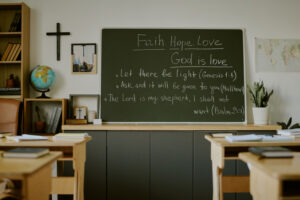 Faith Hope Love
God is love
• Let there be light (Genesis 1:3)
• Ask, and it will be given to you (Matthew)
• The Lord is my shepherd, I shall not
want (Psalm 23:1)